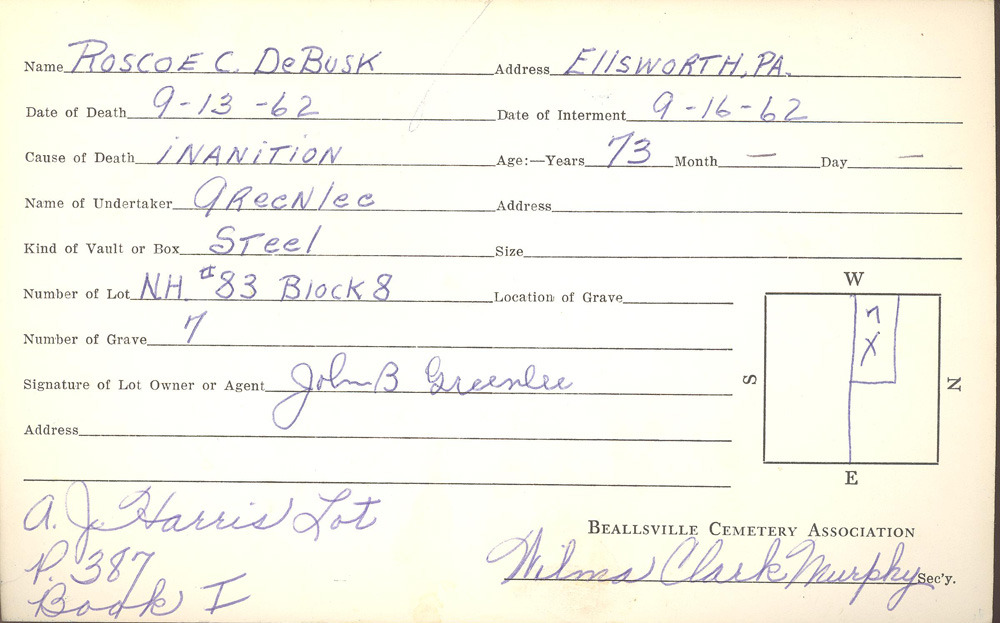 Name ROSCOE C. DeBUSK Address EllSWORTH, PA.
Date of Death 9-13-62 Date of Interment 9-16-62
Cause of Death INANITION Age:—Years 73 Month — Day —
Name of Undertaker GReeNlee Address
Kind of Vault or Box STeel Size
Number of Lot N.H. #83 Block 8 Location of Grave
Number of Grave 7
Signature of Lot Owner or Agent John B Greenlee
Address
W
7
X
S
N
E
A. J. Harris Lot
P. 387
Book I
BEALLSVILLE CEMETERY ASSOCIATION
Wilma Clark Murphy Sec'y.